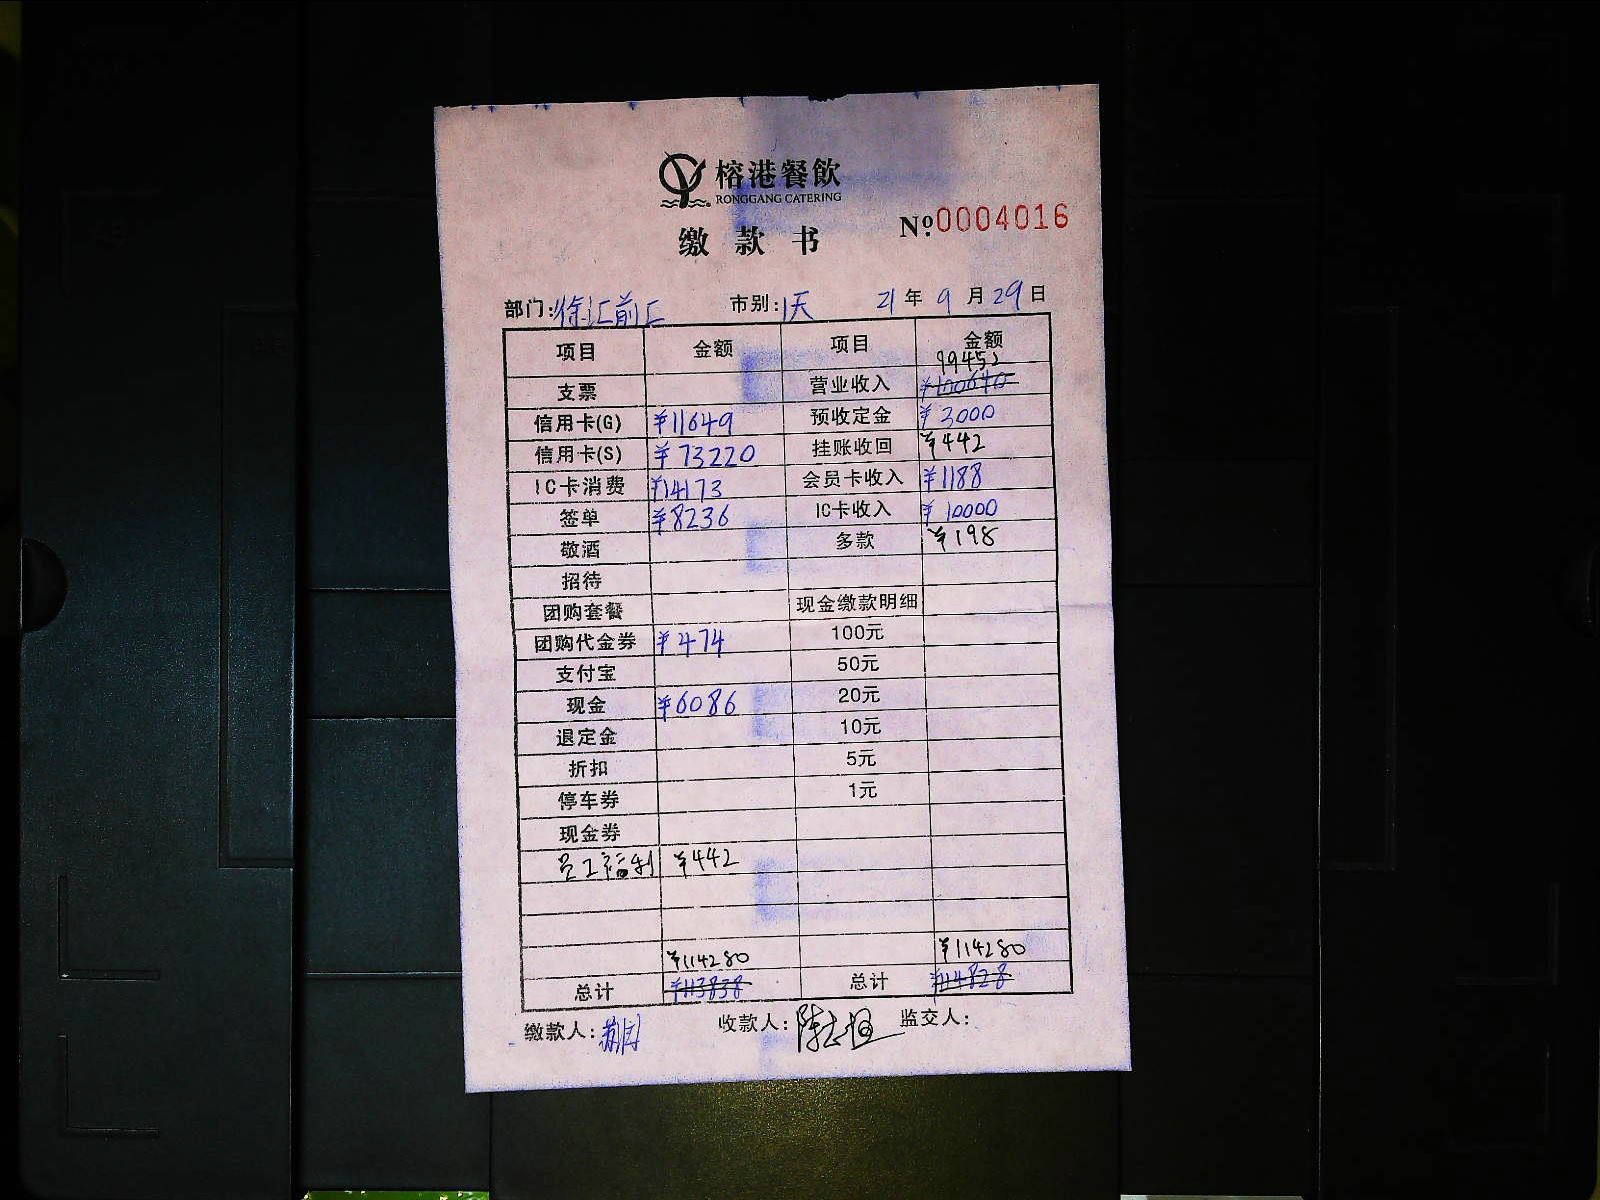 榕港餐飲
RONGGANG CATERING
缴款书
№:0004016
部门:徐汇前厂 市别:1天 21年9月29日
项目 金额 项目 金额
99452
支票 营业收入 ¥100640
信用卡(G) ¥11649 预收定金 ¥3000
信用卡(S) ¥73220 挂账收回 ¥442
IC卡消费 ¥14173 会员卡收入 ¥1188
签单 ¥8236 IC卡收入 ¥10000
敬酒 多款 ¥198
招待
团购套餐 现金缴款明细
团购代金券 ¥474 100元
支付宝 50元
现金 ¥6086 20元
退定金 10元
折扣 5元
停车券 1元
现金券
员工福利 ¥442
¥114280 ¥114280
总计 ¥113838 总计 ¥114828
缴款人: 收款人:陈志恒 监交人: